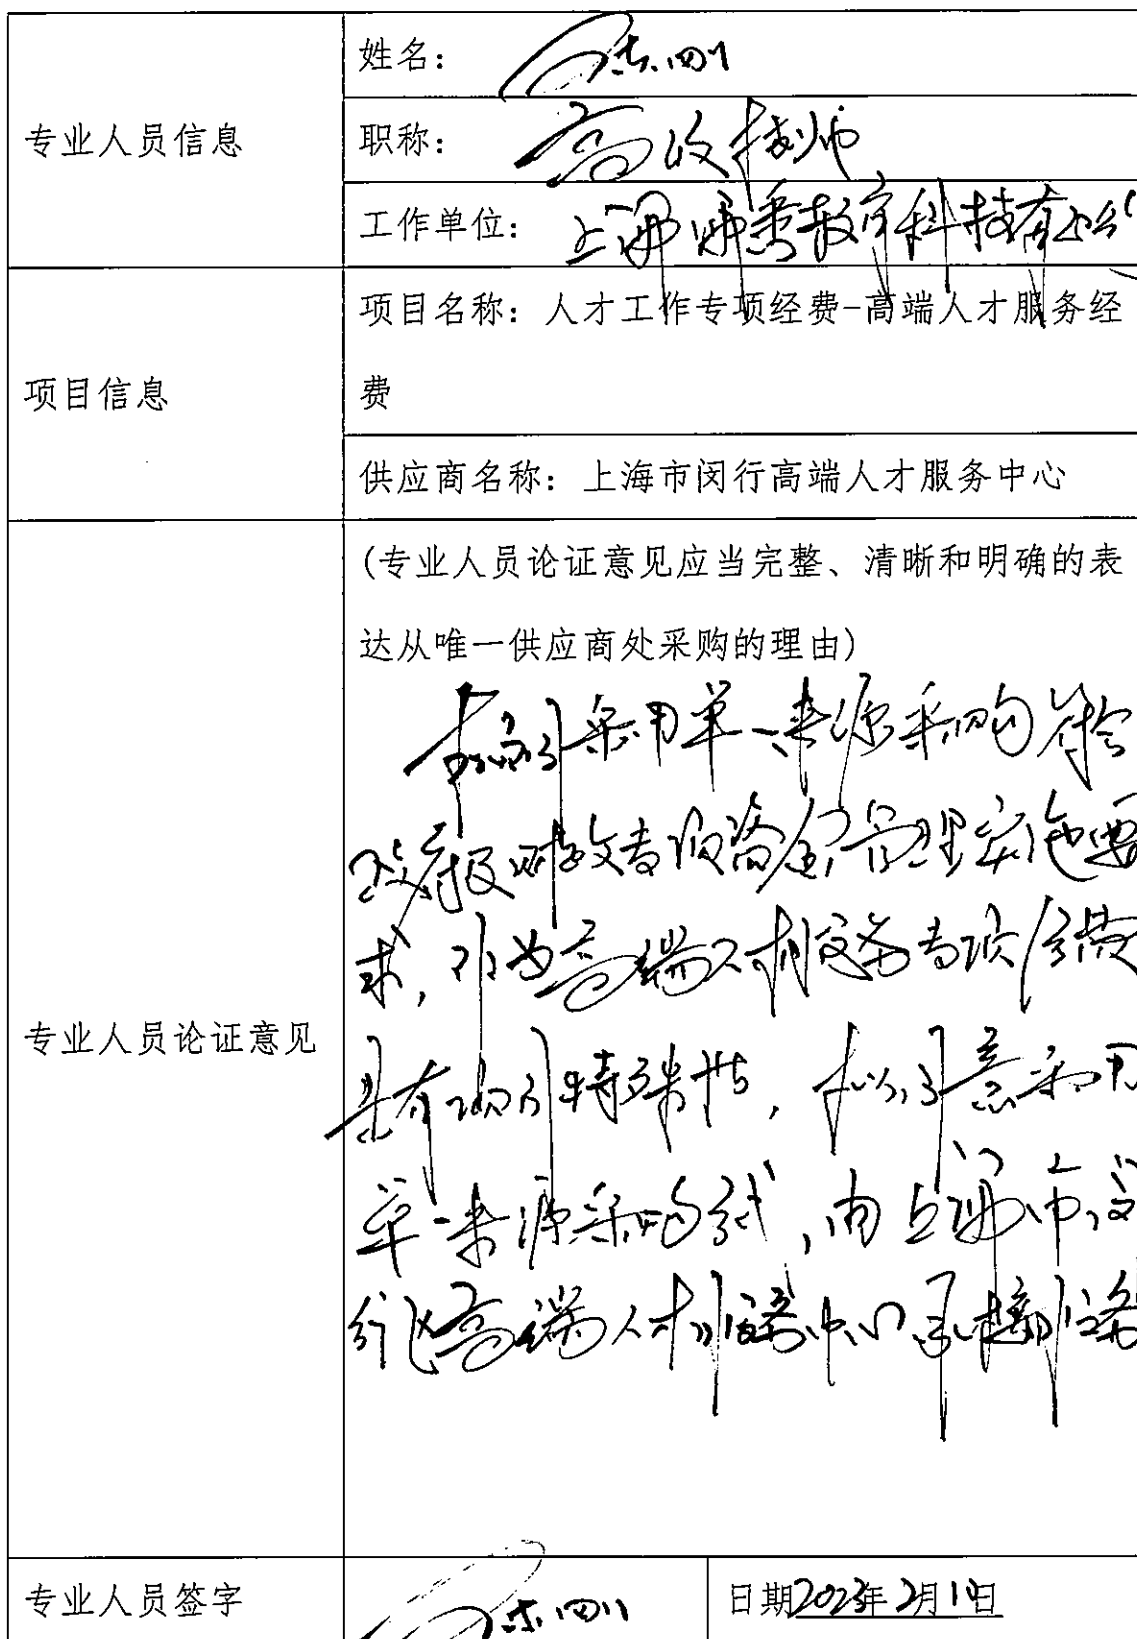 专业人员信息
姓名：
职称：高级技师
工作单位：上海师秀教育科技有限公
项目信息
项目名称：人才工作专项经费-高端人才服务经
费
供应商名称：上海市闵行高端人才服务中心
专业人员论证意见
(专业人员论证意见应当完整、清晰和明确的表
达从唯一供应商处采购的理由)
本项目采用单一来源采购符合
政府财政专项资金管理实施要
求，作为高端人才服务专项经费
具有项目特殊性，拟同意采用
单一来源采购方式，由上海市闵
行区高端人才服务中心承接服务
专业人员签字
日期2023年2月1日